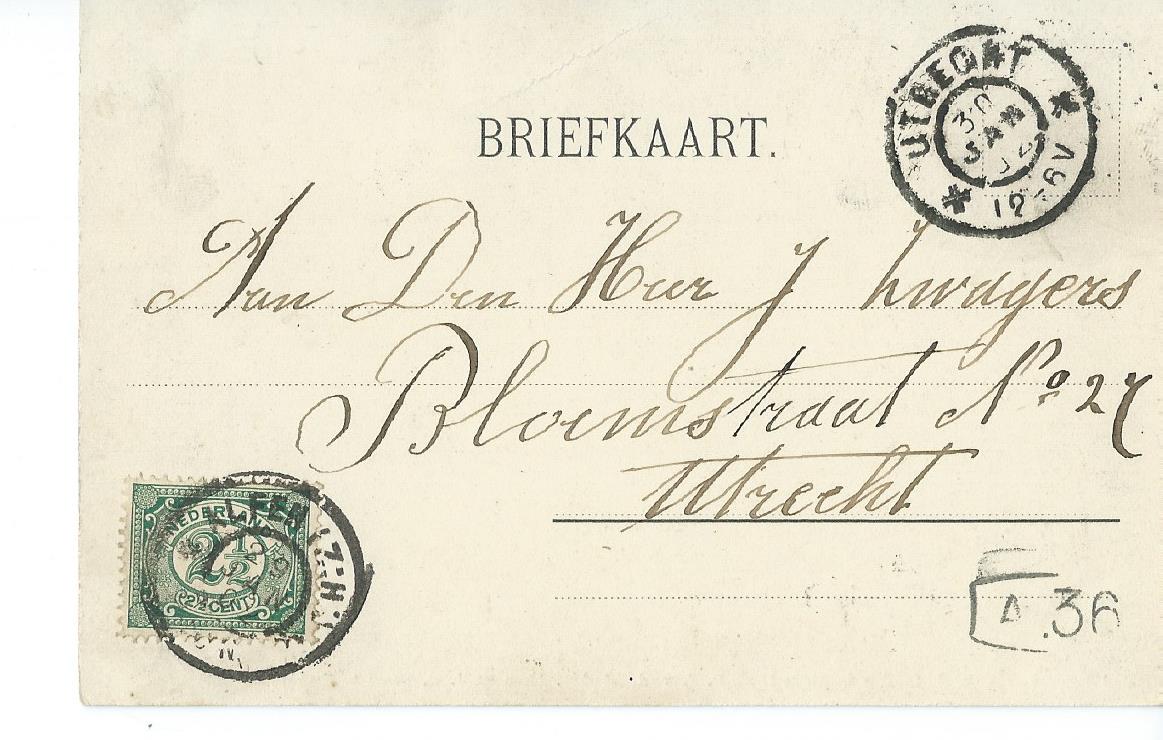 BRIEFKAART.
UTRECHT
30
JAN
12-6V
Aan Den Heer J Zwagers
Bloemstraat No 27
Utrecht
NEDERLAND
2½
2½ CENT
(Z:H:)
A.36